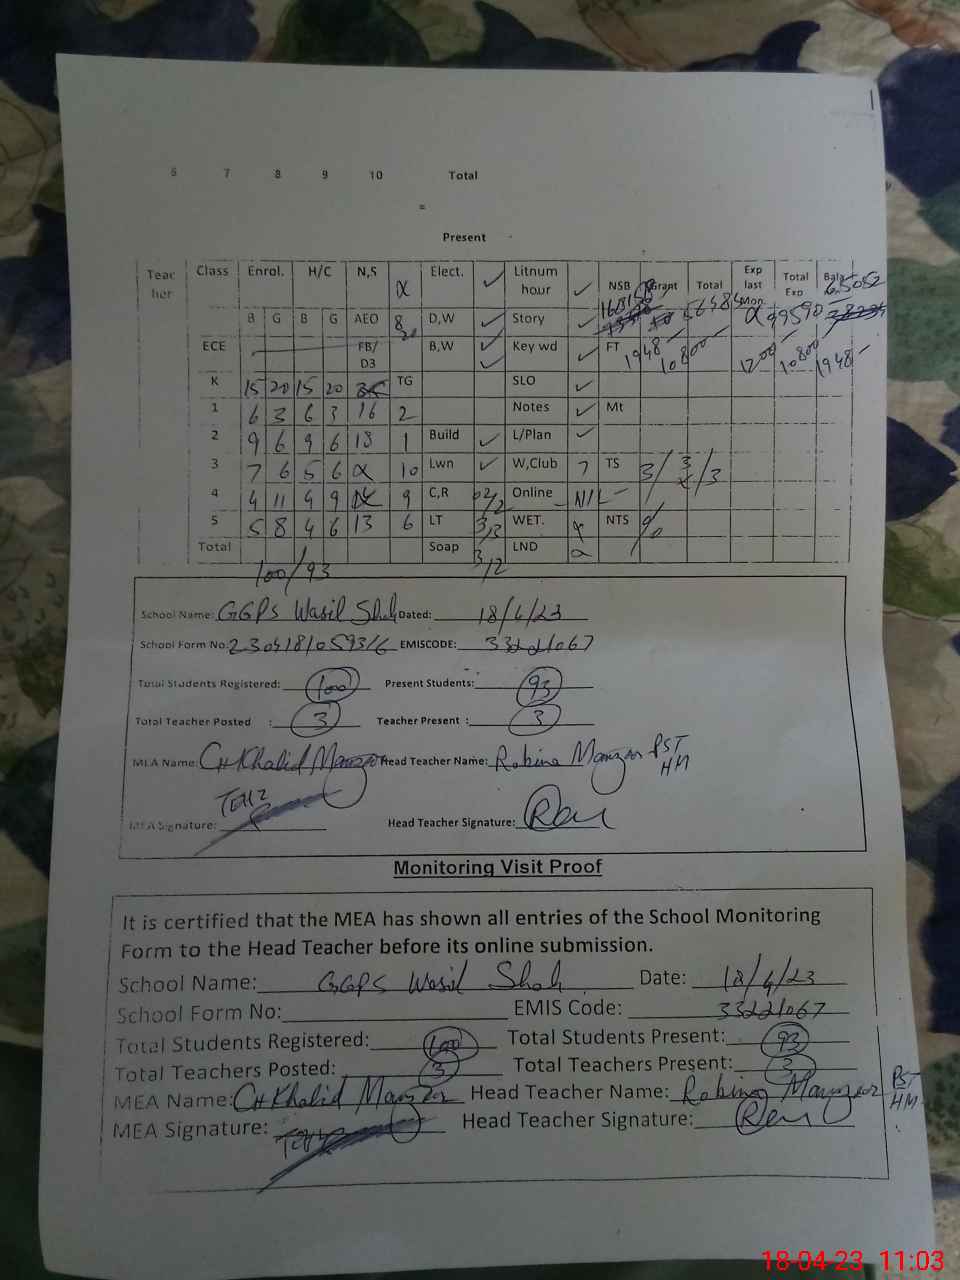 6 7 8 9 10 Total
=
Present
Teac her Class Enrol. H/C N,S α Elect. ✓ Litnum hour ✓ NSB Grant Total Exp last Mon. Total Exp Bala
B G B G AEO 8 D,W ✓ Story ✓ 99590
ECE FB/ D3 B,W ✓ Key wd ✓ FT 1948 10800 1200 10800 1948
K 15 20 15 20 TG SLO ✓
1 6 3 6 3 16 2 Notes ✓ Mt
2 9 6 9 6 18 1 Build ✓ L/Plan ✓
3 7 6 5 6 α 10 Lwn ✓ W,Club 7 TS 3/ /3
4 4 11 4 9 9 C,R 02/2 Online NIL NTS
5 5 8 4 6 13 6 LT 3/3 WET. NTS %
Total Soap 3/2 LND α
100/93
School Name: GGPS Wasil Shah Dated: 18/4/23
School Form No: EMISCODE: 33221067
Total Students Registered: 100 Present Students: 93
Total Teacher Posted : 3 Teacher Present : 3
MEA Name: CH Khalid Manzor Head Teacher Name: Robina Manzoor PST HM
MEA Signature: Head Teacher Signature:
Monitoring Visit Proof
It is certified that the MEA has shown all entries of the School Monitoring
Form to the Head Teacher before its online submission.
School Name: GGPS Wasil Shah Date: 18/4/23
School Form No: EMIS Code: 33221067
Total Students Registered: 100 Total Students Present: 93
Total Teachers Posted: 3 Total Teachers Present: 3
MEA Name: CH Khalid Manzor Head Teacher Name: Robina Manzoor PST HM
MEA Signature: Head Teacher Signature:
18-04-23 11:03